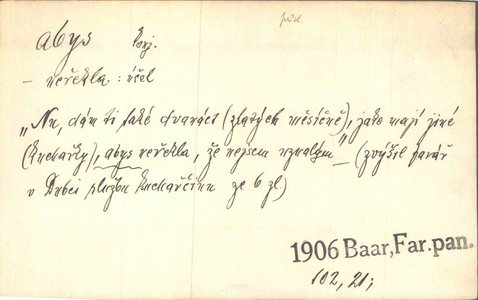 abys konj.
– neřekla : účel
„Nu, dám ti také dvanáct (zlatých měsíčně), jako mají jiné
(kuchařky), abys neřekla, že nejsem uznalým“ – (zvýšil farář
v Drbci službu kuchařčinu ze 6 zl)
1906 Baar, Far. pan.
102, 21;